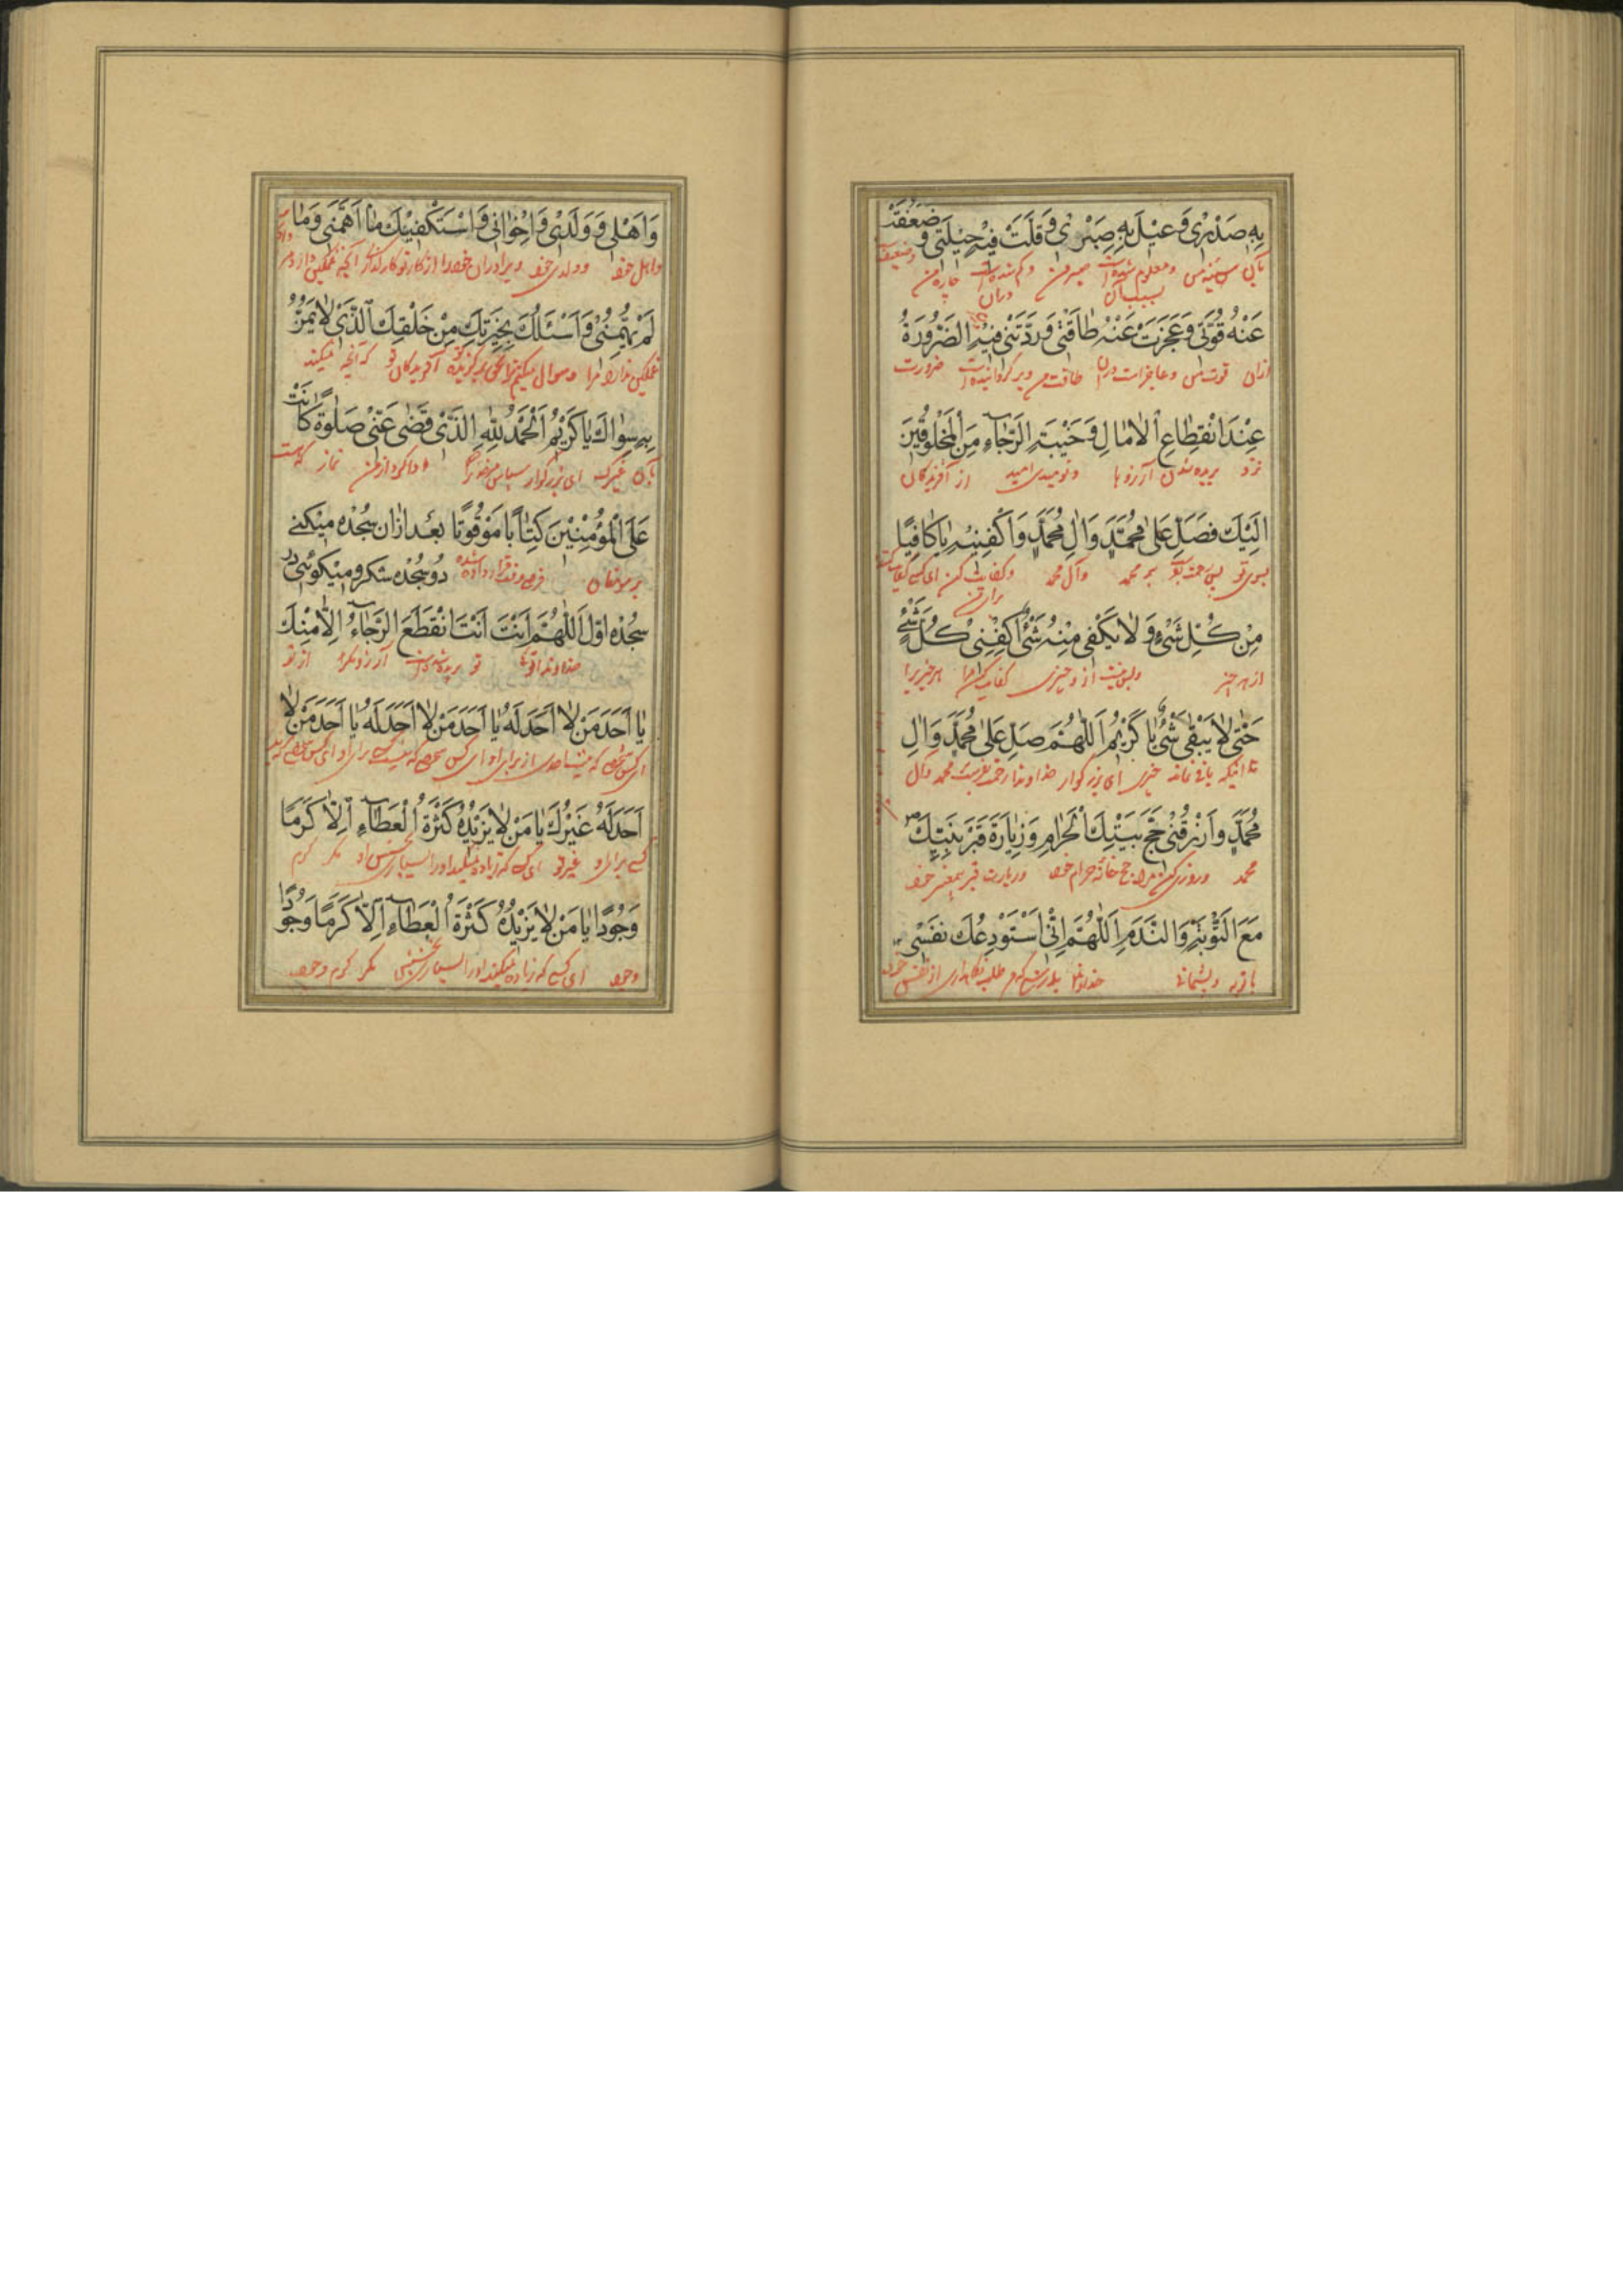 بِهِ صَدْرِی وَ عیلَ بِهِ صَبْرِی وَ قَلَّتْ فیهِ حیلَتی وَ ضَعُفَتْ
بآن سینه من و معلوم شده است صبر من و کم شده است چاره من
بسبب آن دران
عَنْهُ قُوَّتی وَ عَجَزَتْ عَنْهُ طاقَتی وَ رَدَّتْنی فیهِ الضَّرُورَةُ
ازان قوت من و عاجز است دران طاقت من و برگردانیده است ضرورت
عِنْدَ انْقِطاعِ الْامالِ وَ خَیْبَةِ الرَّجاءِ مِنَ الْمَخْلُوقینَ
نزد بریده شدن آرزوها و نومیدی امید از آفریدگان
اِلَیْكَ فَصَلِّ عَلیٰ مُحَمَّدٍ وَ الِ مُحَمَّدٍ وَ اكْفِنیهِ یا كافِیًا
بسوی تو پس رحمت بر محمد وآل محمد و کفایت کن ای
مِنْ كُلِّ شَیْءٍ وَ لا یَكْفی مِنْهُ شَیْءٌ اكْفِنی كُلَّ شَیْءٍ
از هر چیز و بس نیست از و چیزی کفایت کن مرا هر چیز را
حَتّیٰ لا یَبْقیٰ شَیْءٌ یا كَریمُ اَللّٰهُمَّ صَلِّ عَلیٰ مُحَمَّدٍ وَ الِ
تا اینکه باقی نماند چیزی ای بزرگوار خداوندا رحمت بفرست محمد وآل
مُحَمَّدٍ وَ ارْزُقْنی حَجَّ بَیْتِكَ الْحَرامِ وَ زِیارَةَ قَبْرِ نَبِیِّكَ
محمد و روزی کن مرا حج خانه حرام خود و زیارت قبر پیغمبر خود
مَعَ التَّوْبَةِ وَ النَّدَمِ اَللّٰهُمَّ اِنّی اَسْتَوْدِعُكَ نَفْسی
با توبه و پشیمانی خداوندا بدرستی که من طلب نگاهداری از نفس خود
وَ اَهْلی وَ وَلَدی وَ اِخْوانی وَ اسْتَكْفیكَ ما اَهَمَّنی وَ ما
واهل خود و ولدی خود و برادران خود را از کار تو آنچه غمگین دارد مرا
لَمْ یُهِمَّنی وَ اَسْئَلُكَ بِخِیَرَتِكَ مِنْ خَلْقِكَ الَّذی لا یَمُنُّ
غمگین ندارد مرا و سوال میکنم ترا بحق برگزیده آفریدگان تو که
بِهِ سِواكَ یا كَریمُ اَلْحَمْدُ لِلّٰهِ الَّذی قَضیٰ عَنّی صَلٰوةً كانَتْ
بآن غیرک ای بزرگوار سپاس ادا کرد از من نماز که هست
عَلَی الْمُؤْمِنینَ كِتابًا مَوْقُوتًا بعد ازان سجده میكنے
بر مومنان فرض وقت قرار داده شده دو سجده شكر و میكوئی در
سجده اوّل اَللّٰهُمَّ اَنْتَ اَنْتَ انْقَطَعَ الرَّجاءُ اِلّا مِنْكَ
خداوندا توئی تو بریده شده است آرزو مگر از تو
یا اَحَدَ مَنْ لا اَحَدَ لَهُ یا اَحَدَ مَنْ لا اَحَدَ لَهُ یا اَحَدَ مَنْ لا
اَحَدَ لَهُ غَیْرُكَ یا مَنْ لا یَزیدُهُ كَثْرَةُ الْعَطاءِ اِلّا كَرَمًا
کسے برای او غیر تو ای کسے که زیاده نمیکند او را بسیاری بخشش او مگر کرم
وَ جُودًا یا مَنْ لا یَزیدُهُ كَثْرَةُ الْعَطاءِ اِلّا كَرَمًا وَ جُودًا
وجود ای کسے که زیاده نمیکند او را بسیاری بخشش مگر کرم وجود